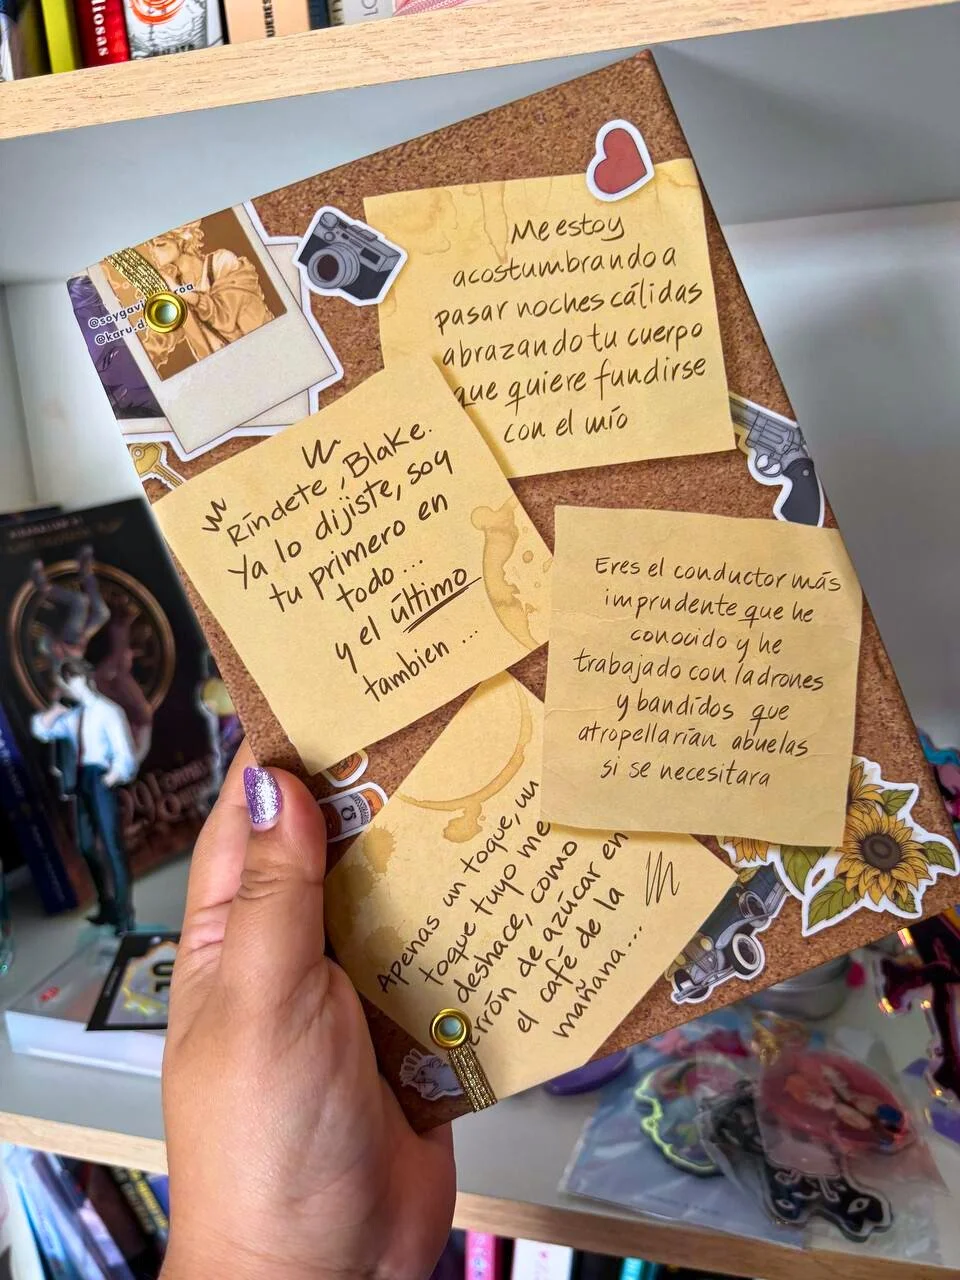 iosas
@soygavi roa
@karu.d
Me estoy
acostumbrando a
pasar noches cálidas
abrazando tu cuerpo
que quiere fundirse
con el mío
Ríndete, Blake.
Ya lo dijiste, soy
tu primero en
todo...
y el último
tambien ...
Eres el conductor más
imprudente que he
conocido y he
trabajado con ladrones
y bandidos que
atropellarían abuelas
si se necesitara
Apenas un toque, un
toque tuyo me
deshace, como
de azúcar en
el café de la
mañana...